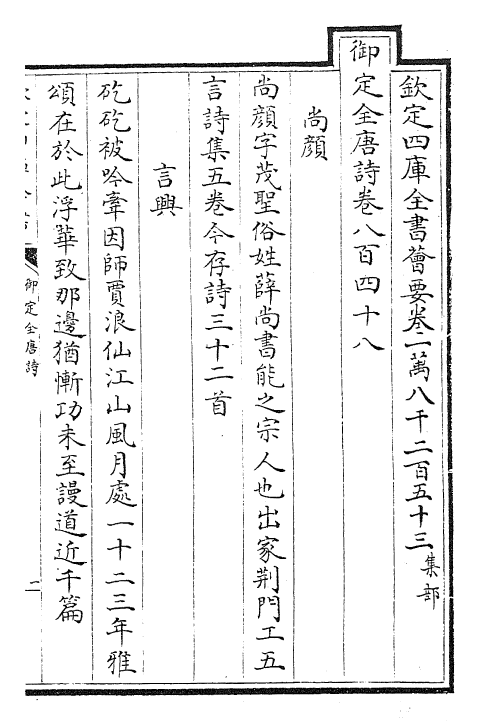 欽定四庫全書薈要卷一萬八千二百五十三集部
御定全唐詩卷八百四十八
尚顔
尚顔字茂聖俗姓薛尚書能之宗人也出家荆門工五
言詩集五卷今存詩三十二首
言興
矻矻被吟牽因師賈浪仙江山風月處一十二三年雅
頌在於此浮華致那邊猶慚功未至謾道近千篇
御定全唐詩